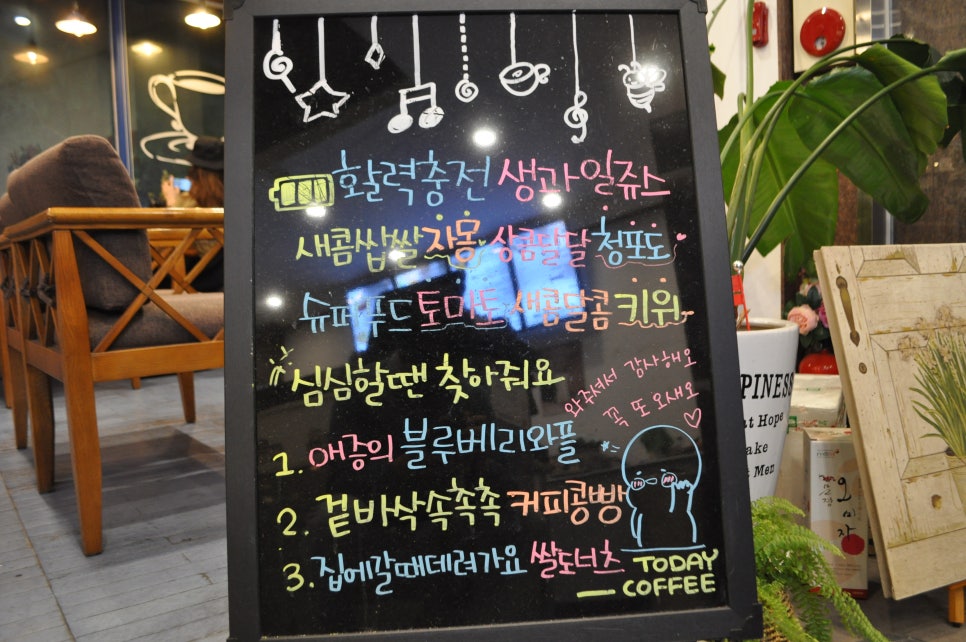 활력충전 생과일쥬스
새콤쌉쌀 자몽 상콤달달 청포도
슈퍼푸드 토마토 새콤달콤 키위
심심할땐 찾아줘요
와주셔서 감사해오
꼭 또 와새오
1. 애증의 블루베리와플
2. 겉바삭속촉촉 커피콩빵
3. 집에갈때데려가요 쌀도너츠
TODAY
COFFEE
PINESS
at Hope
ake
Men
오미자